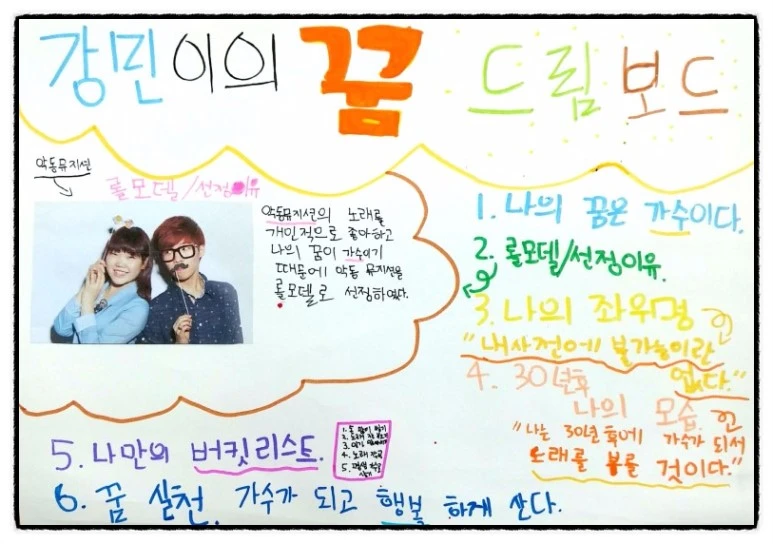 강민이의 꿈 드림보드
악동뮤지션
롤모델/선정이유
악동뮤지션의 노래를
개인적으로 좋아하고
나의 꿈이 가수이기
때문에 악동 뮤지션을
롤모델로 선정하였다.
1. 나의 꿈은 가수이다.
2. 롤모델/선정이유.
3. 나의 좌우명
"내사전에 불가능이란
없다."
4. 30년후
나의 모습.
"나는 30년 후에 가수가 되서
노래를 부를 것이다."
5. 나만의 버킷리스트.
6. 꿈 실천. 가수가 되고 행복 하게 산다.